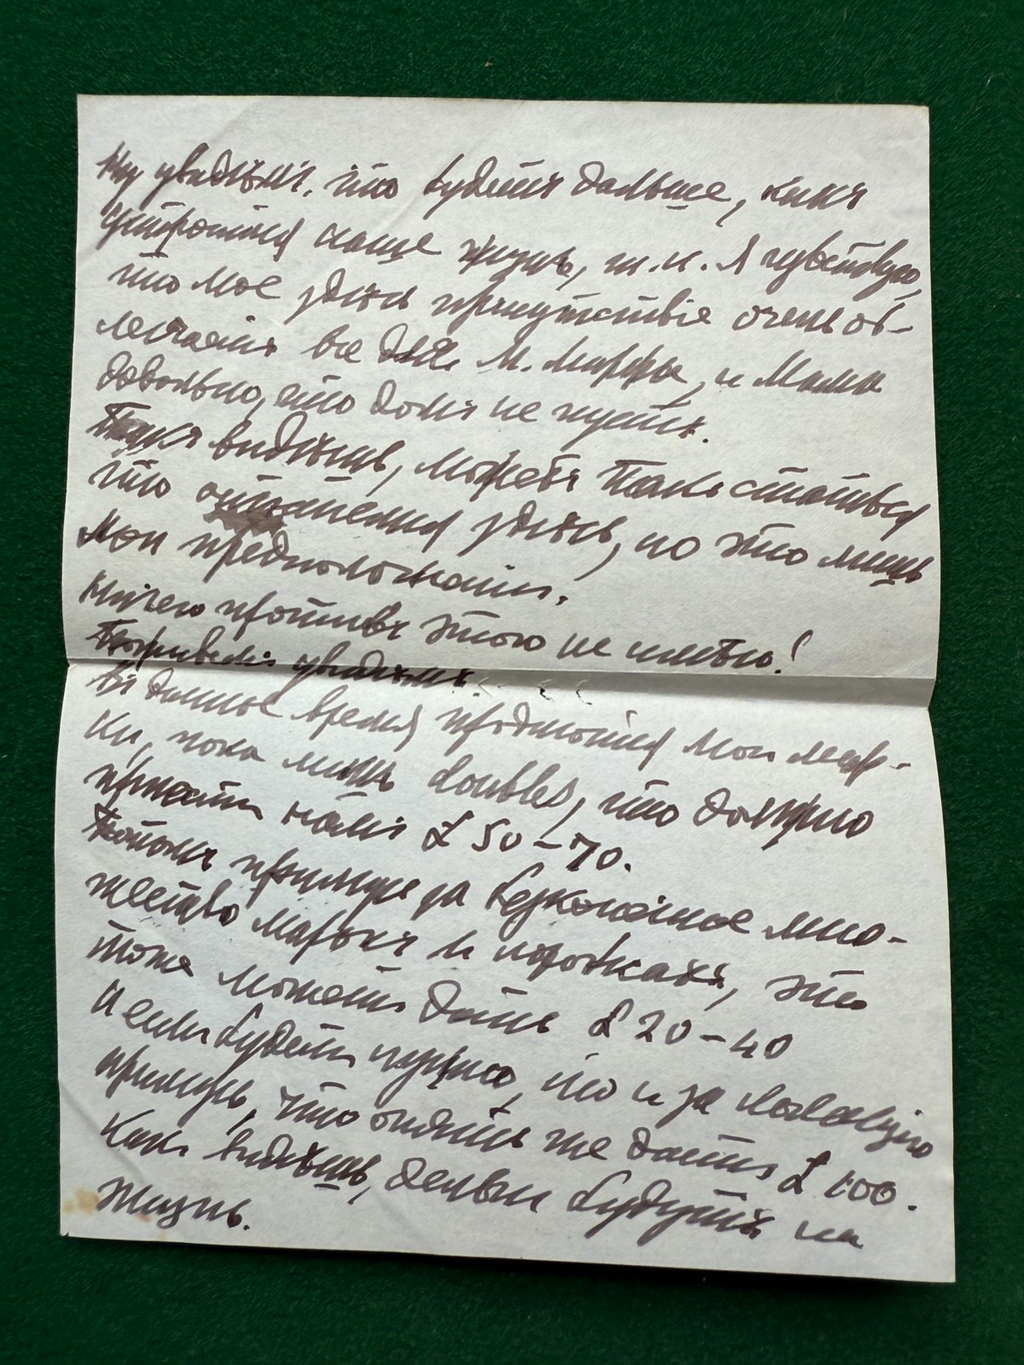 Ну увидимъ, что будетъ дальше, какъ
устроится наша жизнь, т. к. я чувствую,
что мое здѣсь присутствіе очень об-
легчаетъ все для М. Марфы, и Мама
довольна, что домъ не пустъ.
Такъ видишь, можетъ такъ статься
что останемся здѣсь, но это лишь
мои предположенія.
Ничего противъ этого не имѣю!
Поживемъ увидимъ.
Въ данное время продаются мои мар-
ки, пока лишь doubles, что должно
принести намъ £ 50–70.
Потомъ примусь за безконечное мно-
жество марокъ въ коробкахъ, это
тоже можетъ дать £ 20–40
И если будетъ нужно, то и за коллекцію
примусь, что опять же дастъ £ 100.
Какъ видишь, деньги будутъ на
жизнь.